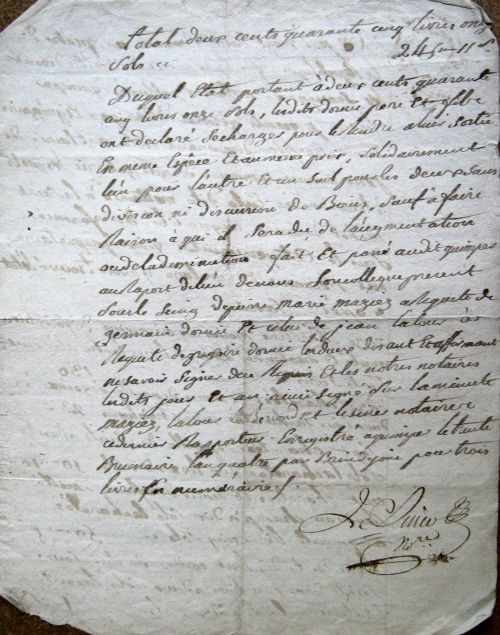 total deux cents quarante cinq livres onze
sols cy 245 ll 11 s
Duquel Etat portant à deux cents quarante
cinq livres onze sols, lesdits domic pere et fils
ont déclaré se charger pour le rendre a leur sortie
En meme Espèce Et au meme prix, solidairement
l'un pour l'autre Et un seul pour les deux sans
division ni discution de Biens, sauf a faire
Raison à qui il sera du de l'augmentation
ou de la diminution fait Et passé audit
au Raport de l'un de nous
sous le seing de pierre marie maziez a Requete de
germain domic Et celui de jean lalous à
Requete de domic lesdits disant Et affirmant
ne savoir signer de ce Requis Et les notres notaires
lesdits jours Et an signé sur la minute
maziez, lalous et le notaires
ce dernier Rapporteur Enregistré a le trente
Brumaire l'an quatre par pour trois
livres En numéraire ./.
Nore